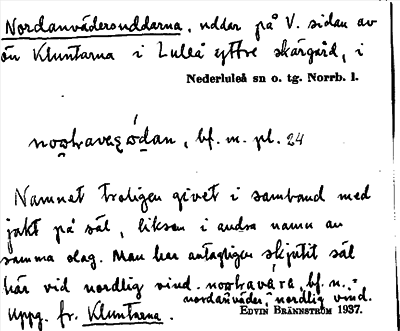 Nordanväderuddarna, uddar på V. sidan av
ön Kluntarna i Luleå yttre skärgård, i
Nederluleå sn o. tg. Norrb. l.
bf. m. pl. 24
Namnet troligen givet i samband med
jakt på säl, liksom i andra namn av
samma slag. Man har antagligen skjutit säl
här vid nordlig vind. bf. n. =
nordanväder, nordlig vind.
Uppg. fr. Kluntarna.
EDVIN BRÄNNSTRÖM 1937.